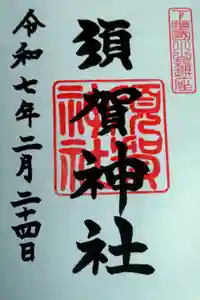 須賀神社
令和七年二月二十四日
須賀神社